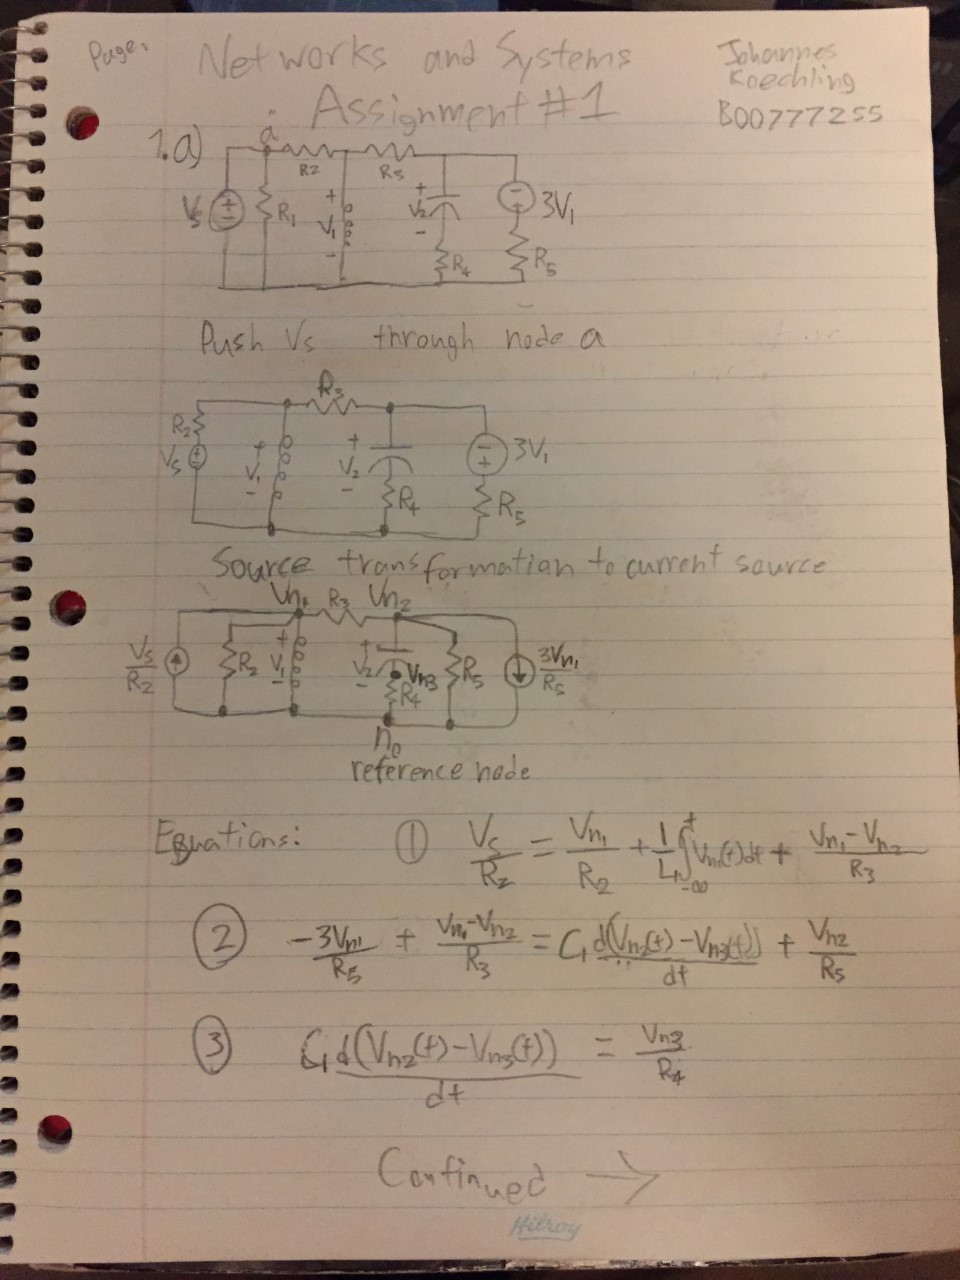 Page.
Networks and Systems
Assignment #1
Johannes
Koechling
B00777255
1.a)
a
R2
R3
Vs
+
-
R1
+
V1
-
+
V2
-
R4
-
+
3V1
R5
Push Vs through node a
R3
R2
Vs
+
V1
-
+
V2
-
R4
-
+
3V1
R5
Source transformation to current source
Vn1
R3
Vn2
Vs/R2
R2
+
V1
-
+
V2
-
Vn3
R4
R5
3Vn1/R5
n0
reference node
Equations: ① Vs/R2 = Vn1/R2 + 1/L1 ∫-∞^t Vn1(t)dt + (Vn1-Vn2)/R3
② -3Vn1/R5 + (Vn1-Vn2)/R3 = C1 d(Vn2(t)-Vn3(t))/dt + Vn2/R5
③ C1 d(Vn2(t)-Vn3(t))/dt = Vn3/R4
Continued →
Hilroy